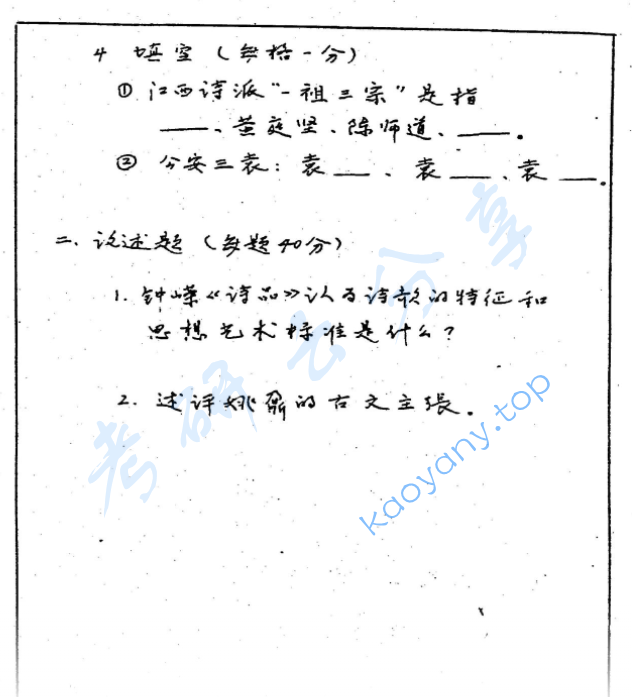 4 填空（每格一分）
① 江西诗派"一祖三宗"是指
——、黄庭坚、陈师道、——。
② 公安三袁：袁——、袁——、袁——。
二、论述题（每题40分）
1. 钟嵘《诗品》认为诗歌的特征和
思想艺术标准是什么？
2. 述评姚鼐的古文主張。
考研云分享
kaoyany.top